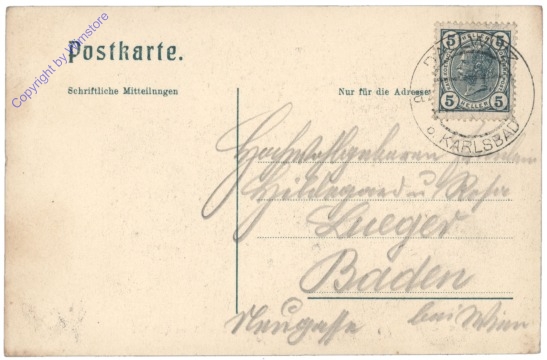 Copyright by Wimstore
Postkarte.
Schriftliche Mitteilungen
Nur für die Adresse
5 5
5 HELLER 5
KARLSBAD
Hochwohlgeboren
Hildegard u Rosa
Lueger
Baden
Neugasse bei Wien